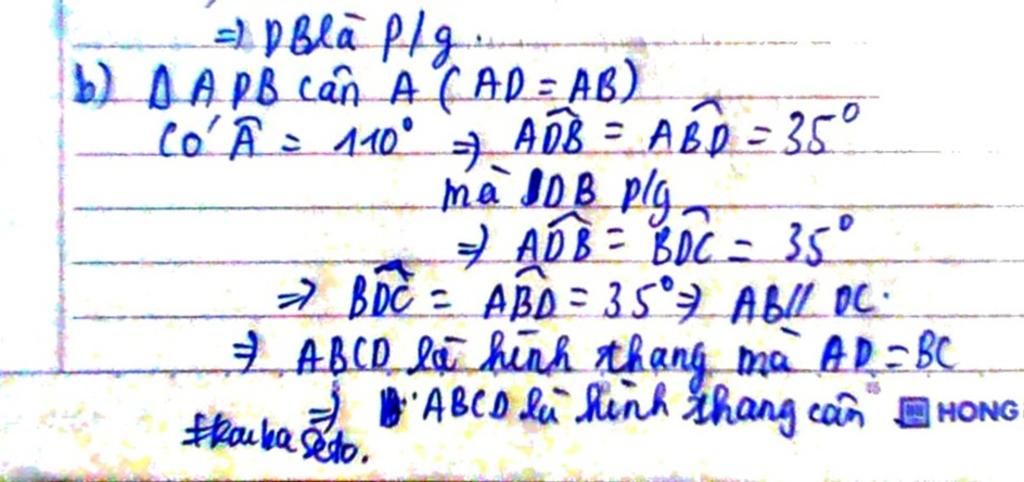 =) DB là p/g.
b) Δ ADB cân A ( AD = AB)
Có Â = 110° => ADB̂ = ABD̂ = 35°
mà DB p/g
=> ADB̂ = BDĈ = 35°
=> BDĈ = ABD̂ = 35° => AB // DC.
=> ABCD là hình thang mà AD = BC
=> ABCD là hình thang cân
HONG